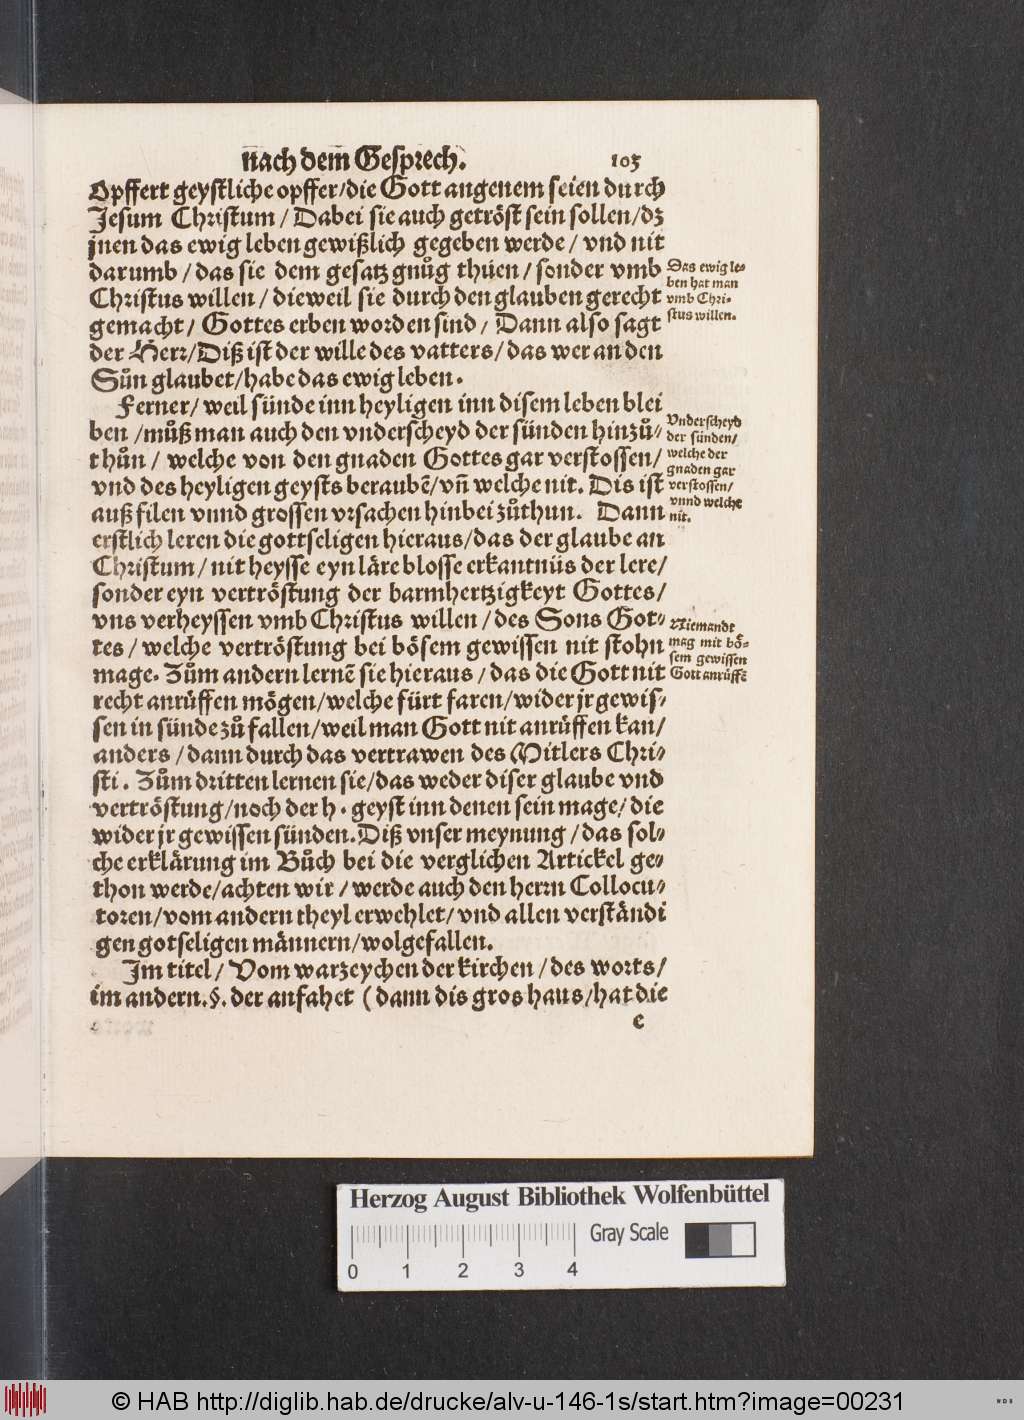 nach dem̄ Gesprech. 103
Opffert geystliche opffer/die Gott angenem seien durch
Jesum Christum / Dabei sie auch getröst sein sollen/dz
jnen das ewig leben gewißlich gegeben werde / vnd nit
darumb / das sie dem gesatz gnůg thüen / sonder vmb
Christus willen / dieweil sie durch den glauben gerecht
gemacht / Gottes erben worden sind / Dann also sagt
der Herr/Diß ist der wille des vatters/das wer an den
Sůn glaubet/habe das ewig leben.
Das ewig le-
ben hat man
vmb Chri-
stus willen.
Ferner/ weil sünde inn heyligen inn disem leben blei
ben /můß man auch den vnderscheyd der sünden hinzů-
thůn / welche von den gnaden Gottes gar verstossen/
vnd des heyligen geysts beraubē/vñ welche nit. Dis ist
auß filen vnnd grossen vrsachen hinbei zůthun. Dann
erstlich leren die gottseligen hieraus/das der glaube an
Christum/ nit heysse eyn läre blosse erkantnüs der lere/
sonder eyn vertröstung der barmhertzigkeyt Gottes/
vns verheyssen vmb Christus willen /des Sons Got-
tes / welche vertröstung bei bösem gewissen nit stohn
mage. Zům andern lernē sie hieraus / das die Gott nit
recht anrüffen mögen/welche fürt faren/wider jr gewis-
sen in sünde zů fallen/weil man Gott nit anrüffen kan/
anders /dann durch das vertrawen des Mitlers Chri-
sti. Zům dritten lernen sie/das weder diser glaube vnd
vertröstung/noch der h. geyst inn denen sein mage/ die
wider jr gewissen sünden. Diß vnser meynung /das sol-
che erklärung im Bůch bei die verglichen Artickel ge-
thon werde/achten wir / werde auch den herrn Collocu-
toren/vom andern theyl erwehlet/ vnd allen verständi
gen gotseligen männern/wolgefallen.
Vnderscheyd
der sünden/
welche der
gnaden gar
verstossen/
vnnd welche
nit.
Niemandt
mag mit bö-
sem gewissen
Gott anrüffē
Im titel / Vom warzeychen der kirchen /des worts/
im andern.§. der anfahet (dann dis gros haus/hat die
e
Herzog August Bibliothek Wolfenbüttel
0 1 2 3 4 Gray Scale
© HAB http://diglib.hab.de/drucke/alv-u-146-1s/start.htm?image=00231